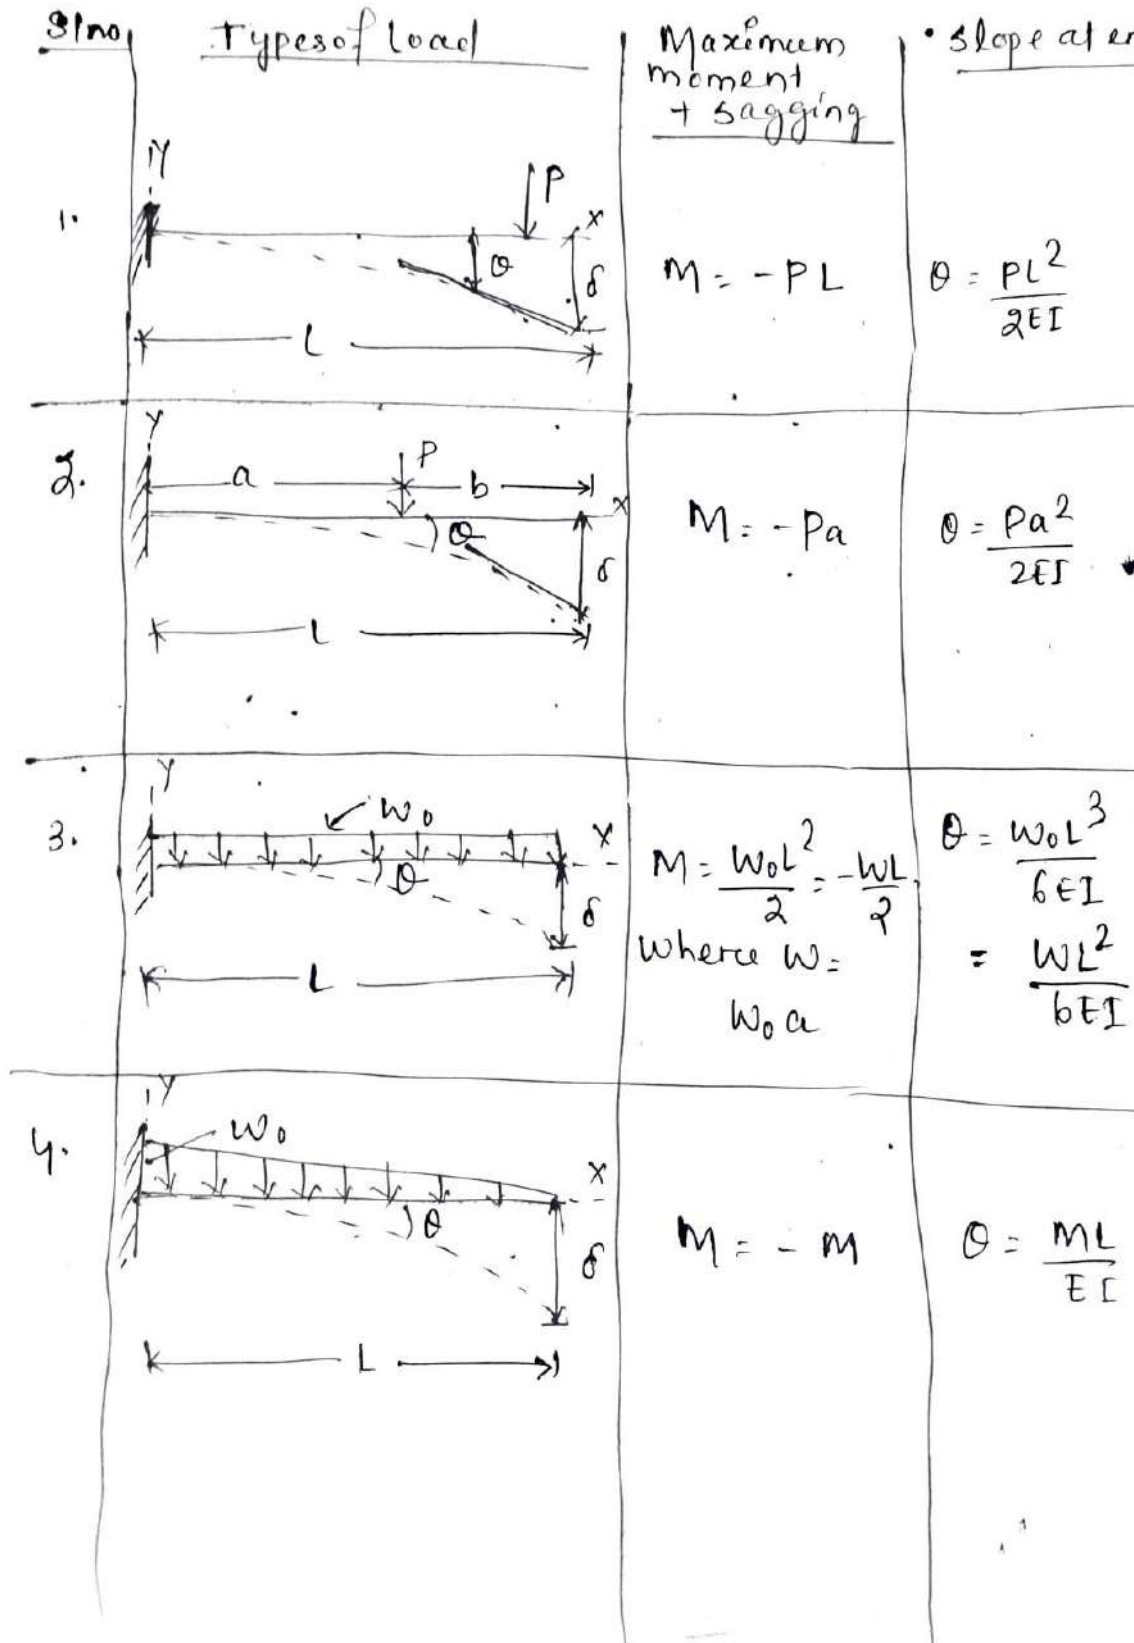 Slno Types of load Maximum moment + sagging • slope at en
1. Y P x θ δ L M = -PL θ = PL²/2EI
2. Y a P b x θ δ L M = -Pa θ = Pa²/2EI
3. Y W₀ x θ δ L M = W₀L²/2 = -WL/2 θ = W₀L³/6EI
wherce W = W₀a = WL²/6EI
4. Y W₀ x θ δ L M = -M θ = ML/EI